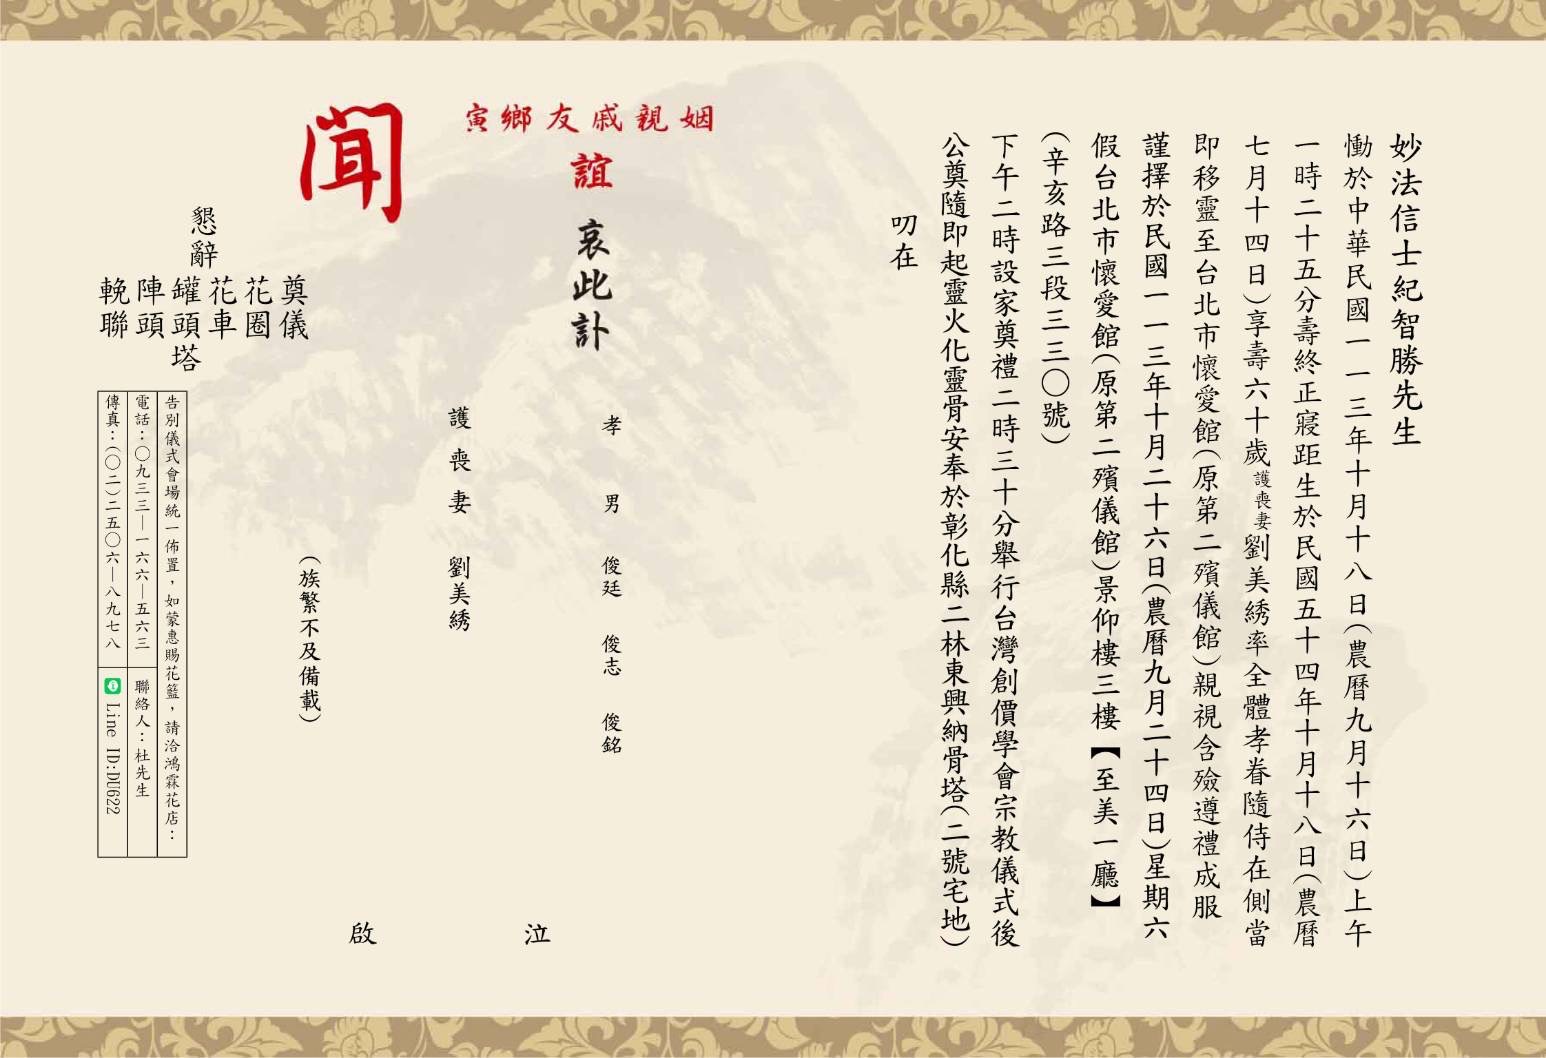 妙法信士紀智勝先生
慟於中華民國一一三年十月十八日(農曆九月十六日)上午
一時二十五分壽終正寢距生於民國五十四年十月十八日(農曆
七月十四日)享壽六十歲護喪妻劉美綉率全體孝眷隨侍在側當
即移靈至台北市懷愛館(原第二殯儀館)親視含殮遵禮成服
謹擇於民國一一三年十月二十六日(農曆九月二十四日)星期六
假台北市懷愛館(原第二殯儀館)景仰樓三樓【至美一廳】
(辛亥路三段三三〇號)
下午二時設家奠禮二時三十分舉行台灣創價學會宗教儀式後
公奠隨即起靈火化靈骨安奉於彰化縣二林東興納骨塔(二號宅地)
叨在
姻親戚友鄉寅
誼 哀此訃
聞
孝男 俊廷 俊志 俊銘
護喪妻 劉美綉
(族繁不及備載)
泣
啟
懇辭
奠儀
花圈
花車
罐頭塔
陣頭
輓聯
告別儀式會場統一佈置,如蒙惠賜花籃,請洽鴻霖花店:
電話:〇九三三—一六六—五六三 聯絡人:杜先生
傳真:(〇二)二五〇六—八九七八 Line ID:DU622